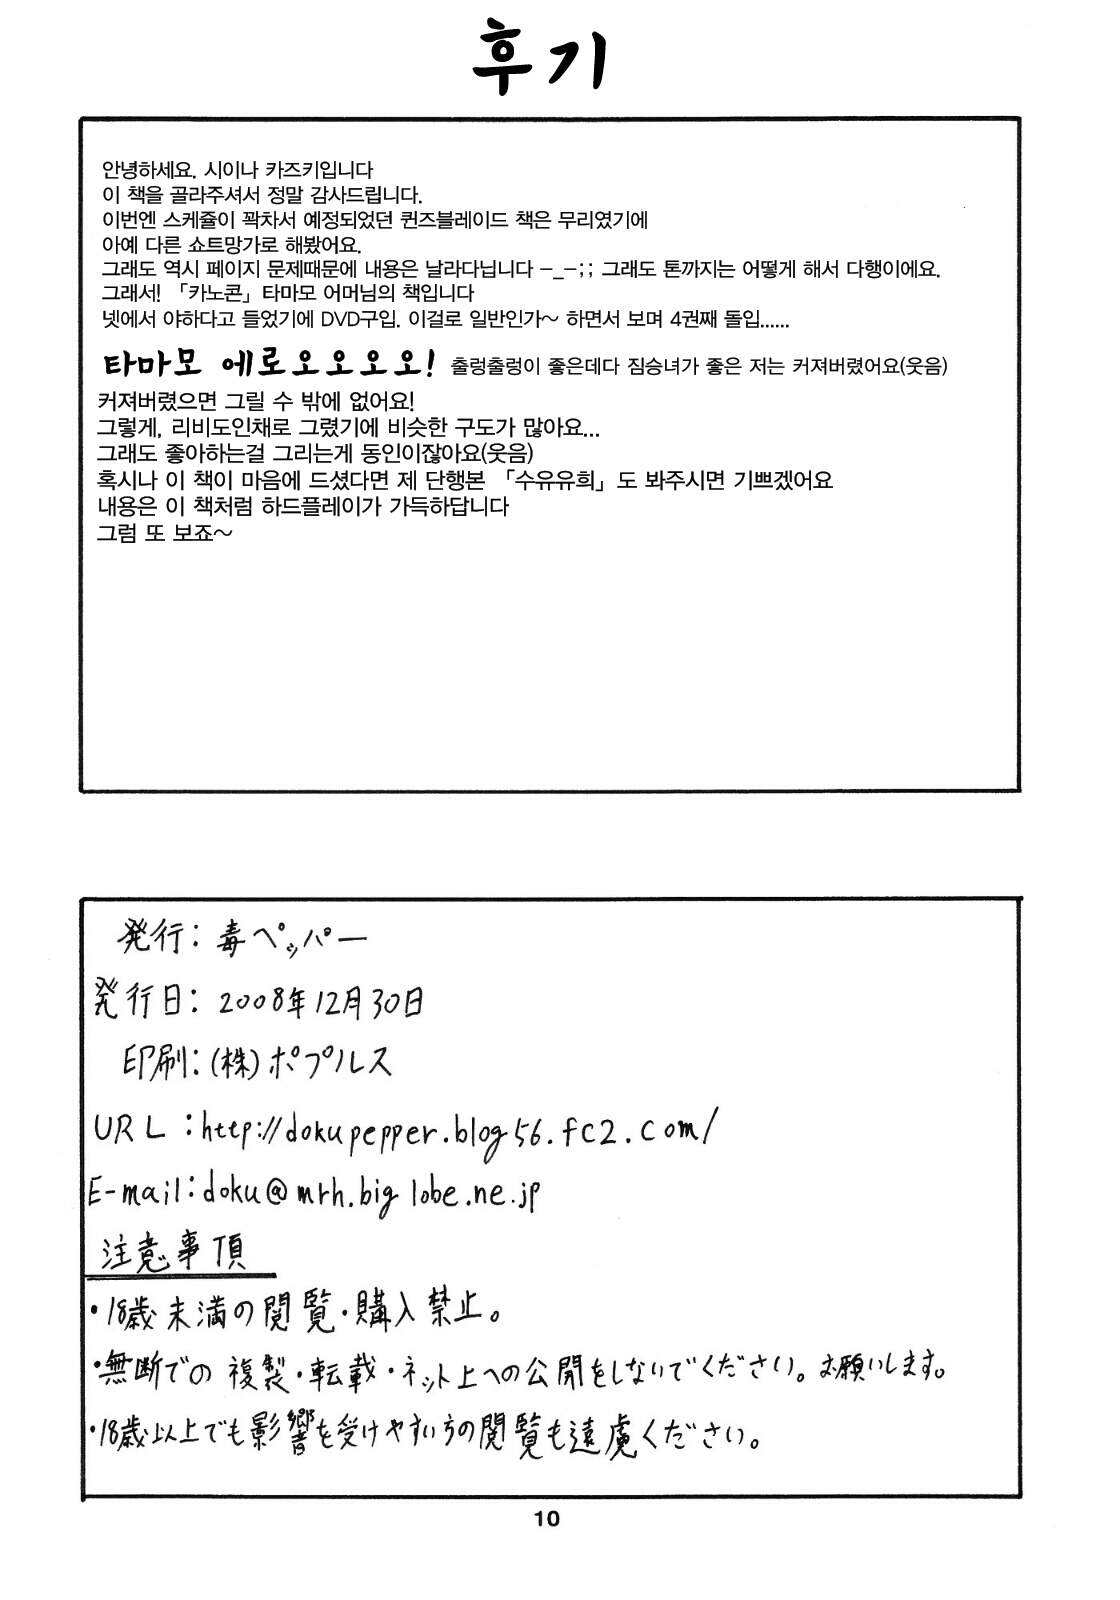 후기
안녕하세요. 시이나 카즈키입니다
이 책을 골라주셔서 정말 감사드립니다.
이번엔 스케쥴이 꽉차서 예정되었던 퀸즈블레이드 책은 무리였기에
아예 다른 쇼트망가로 해봤어요.
그래도 역시 페이지 문제때문에 내용은 날라다닙니다 -_-;; 그래도 톤까지는 어떻게 해서 다행이에요.
그래서! 「카노콘」타마모 어머님의 책입니다
넷에서 야하다고 들었기에 DVD구입. 이걸로 일반인가~ 하면서 보며 4권째 돌입......
타마모 에로오오오오! 출렁출렁이 좋은데다 짐승녀가 좋은 저는 커져버렸어요(웃음)
커져버렸으면 그릴 수 밖에 없어요!
그렇게, 리비도인채로 그렸기에 비슷한 구도가 많아요...
그래도 좋아하는걸 그리는게 동인이잖아요(웃음)
혹시나 이 책이 마음에 드셨다면 제 단행본 「수유유희」도 봐주시면 기쁘겠어요
내용은 이 책처럼 하드플레이가 가득하답니다
그럼 또 보죠~
発行：毒ペッパー
発行日：2008年12月30日
印刷：(株)ポプルス
URL：http://dokupepper.blog56.fc2.com/
E-mail：doku@mrh.biglobe.ne.jp
注意事項
・18歳未満の閲覧・購入禁止。
・無断での複製・転載・ネット上への公開をしないでください。お願いします。
・18歳以上でも影響を受けやすい方の閲覧も遠慮ください。
10